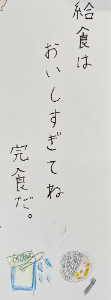 給食は
おいしすぎてね
完食だ。